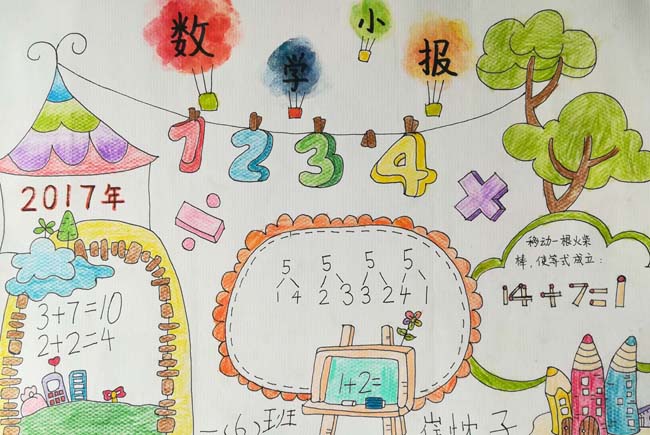 数学小报
1 2 3 4
÷ ×
2017年
3+7=10
2+2=4
5 5 5 5
1 4 2 3 3 2 4 1
1+2=
移动一根火柴
棒，使等式成立：
14+7=1
一(6)班